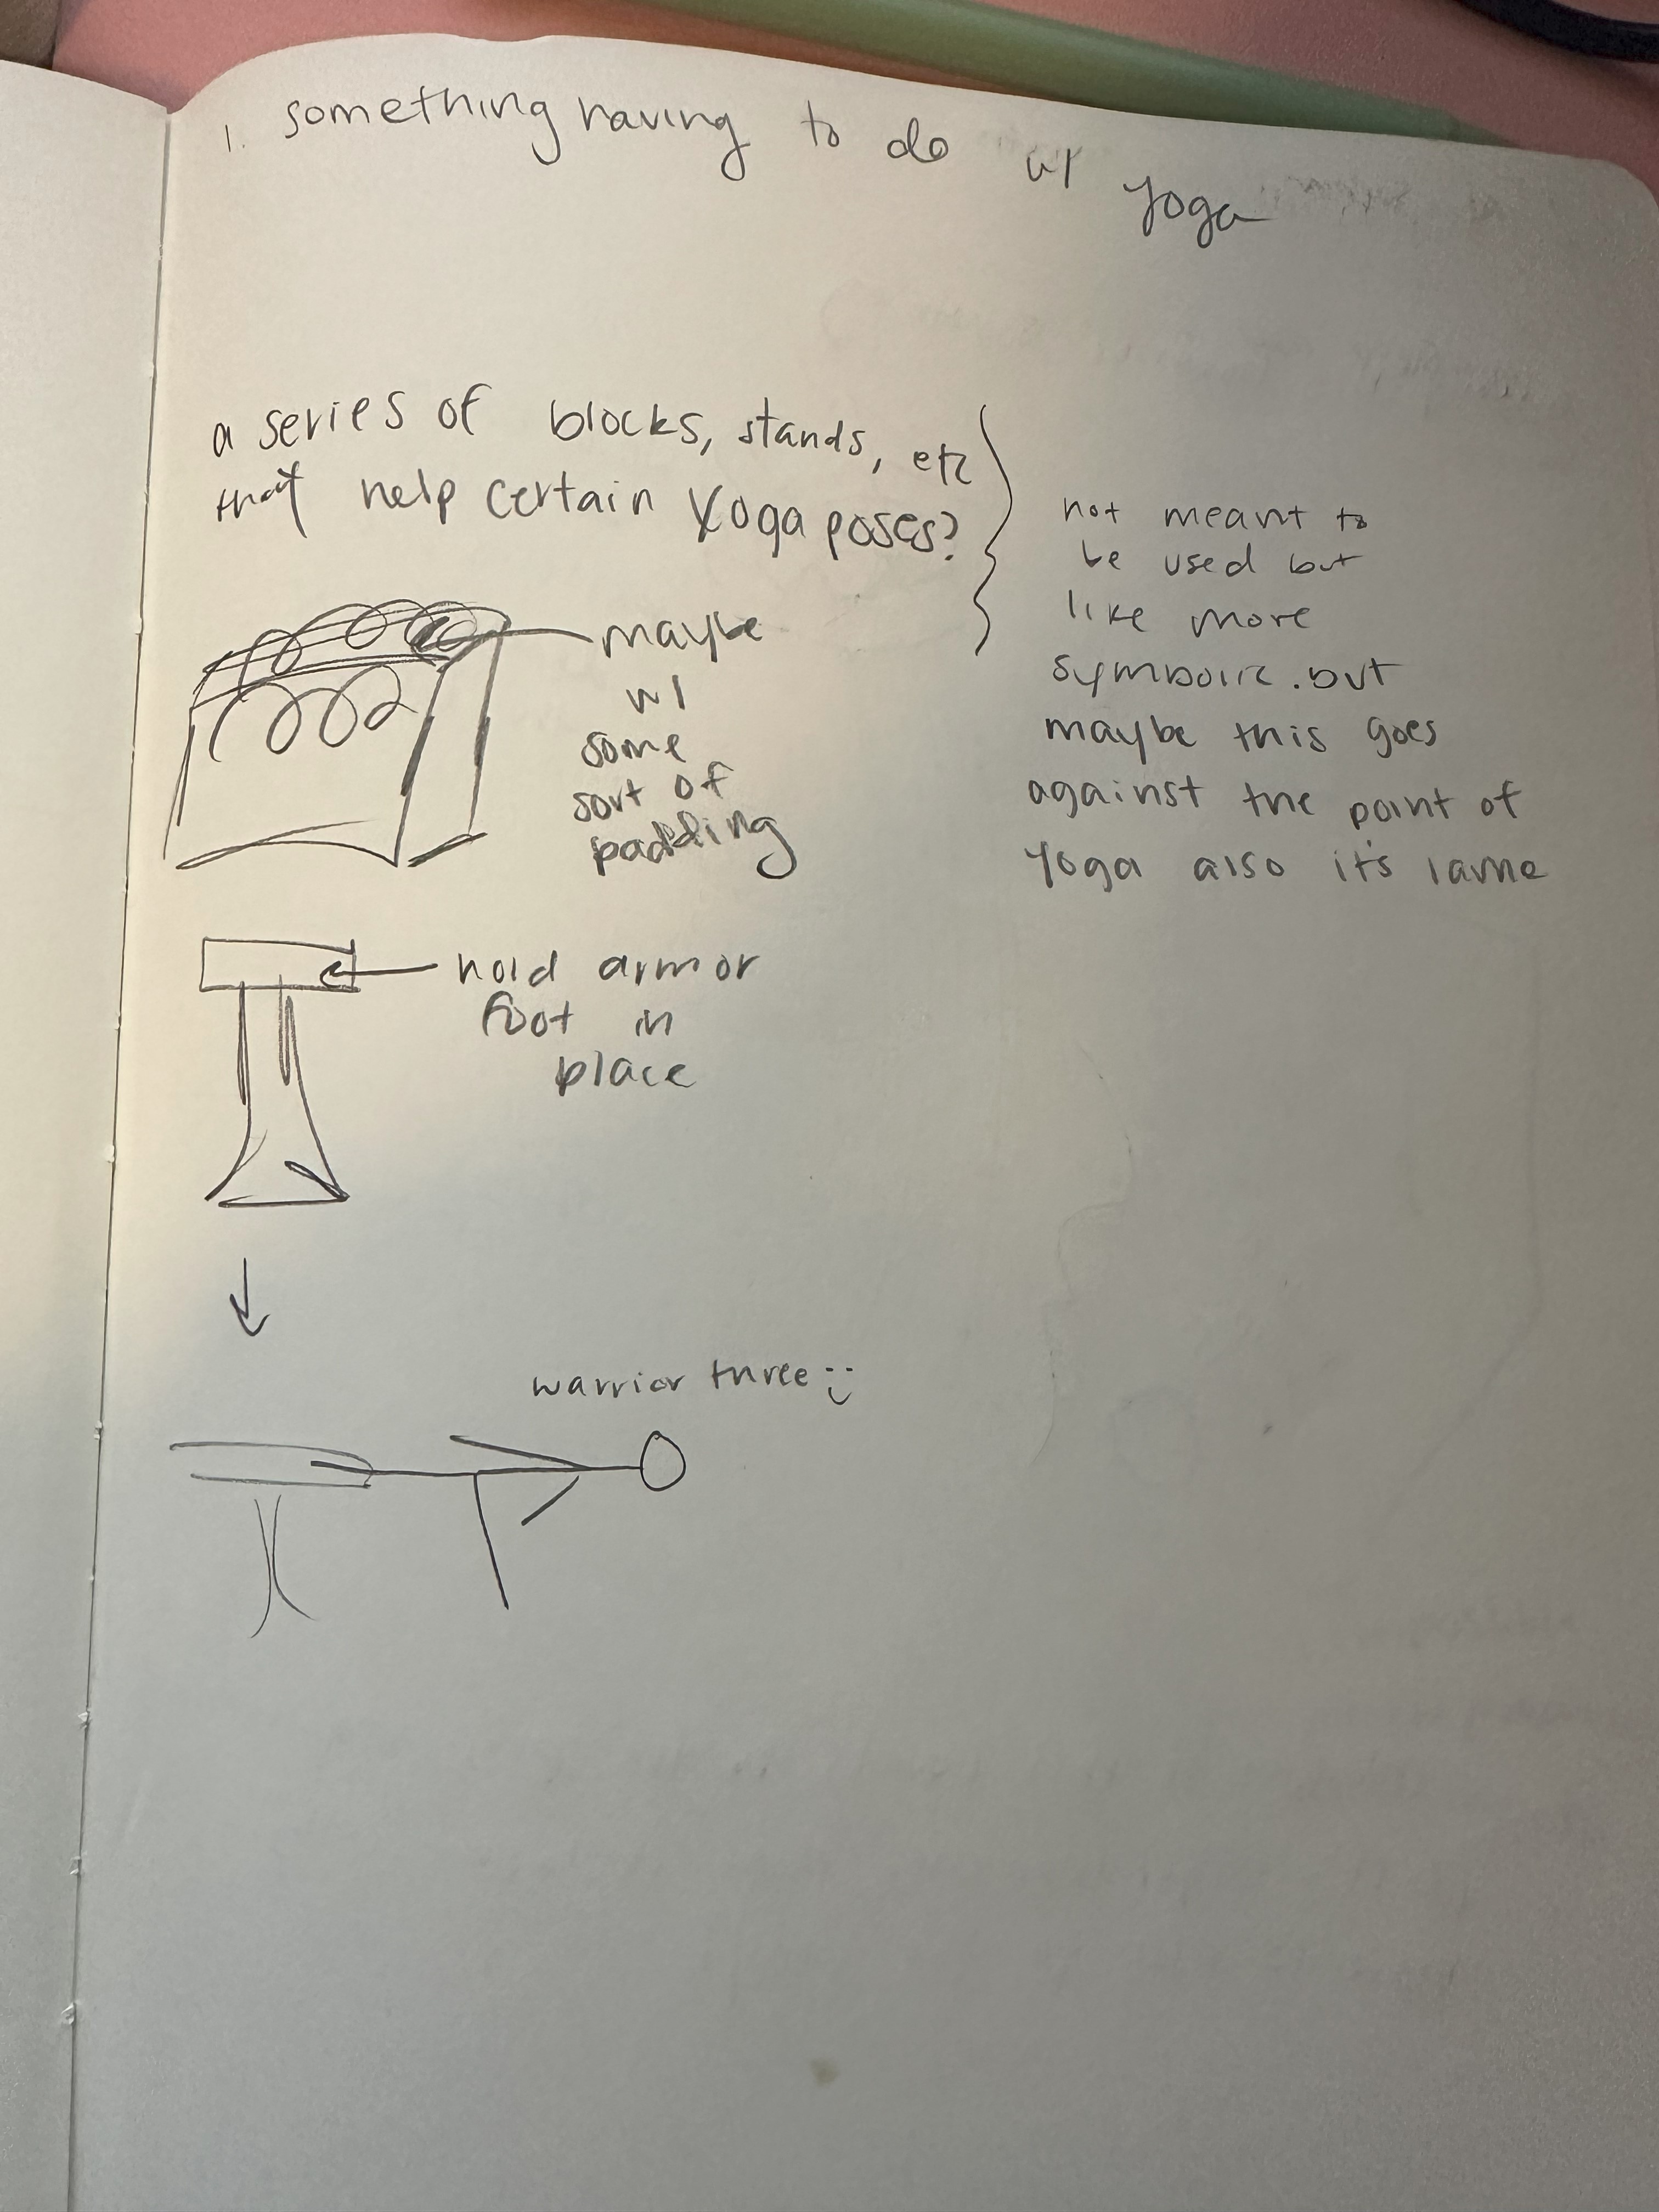 1. something having to do w/ yoga
a series of blocks, stands, etc
that help certain yoga poses?
not meant to
be used but
like more
symbolic. but
maybe this goes
against the point of
yoga also it's lame
maybe
w/
some
sort of
padding
hold arm or
foot in
place
warrior three :)